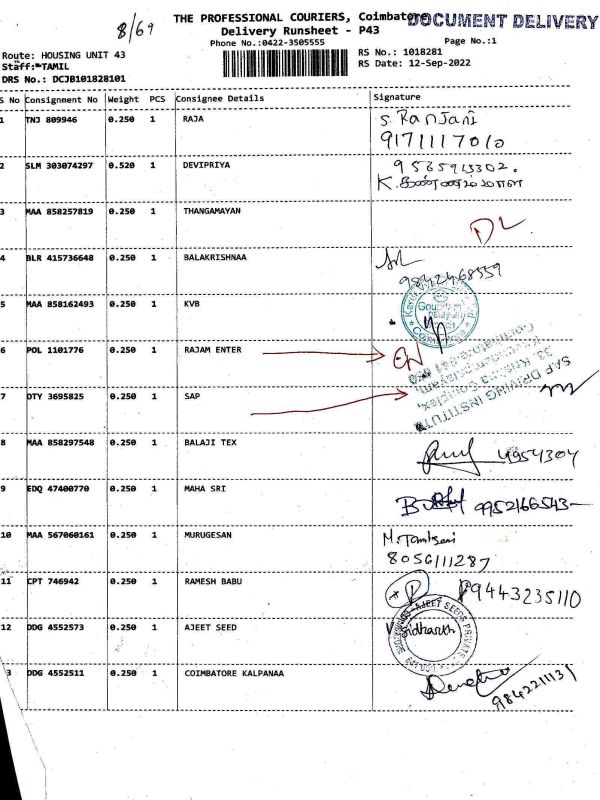 8/69
THE PROFESSIONAL COURIERS, Coimbatore DOCUMENT DELIVERY
Delivery Runsheet - P43
Phone No.:0422-3505555 Page No.:1
Route: HOUSING UNIT 43 RS No.: 1018281
Staff: TAMIL RS Date: 12-Sep-2022
DRS No.: DCJB101828101
S No Consignment No Weight PCS Consignee Details Signature
1 TNJ 809946 0.250 1 RAJA S. Ranjani
9171117010
2 SLM 303074297 0.520 1 DEVIPRIYA
3 MAA 858257819 0.250 1 THANGAMAYAN DL
4 BLR 415736648 0.250 1 BALAKRISHNAA
9842468559
5 MAA 858162493 0.250 1 KVB
6 POL 1101776 0.250 1 RAJAM ENTER
7 OTY 3695825 0.250 1 SAP
SAF DRIVING INSTITUTE
33, Krishna Complex,
8 MAA 858297548 0.250 1 BALAJI TEX 4954304
9 EDQ 47400770 0.250 1 MAHA SRI 9952166543
10 MAA 567060161 0.250 1 MURUGESAN M. Tamilsani
8056111287
11 CPT 746942 0.250 1 RAMESH BABU 9443235110
12 DDG 4552573 0.250 1 AJEET SEED Sidharth
AJEET SEEDS PRIVATE
3 DDG 4552511 0.250 1 COIMBATORE KALPANAA
9842211131